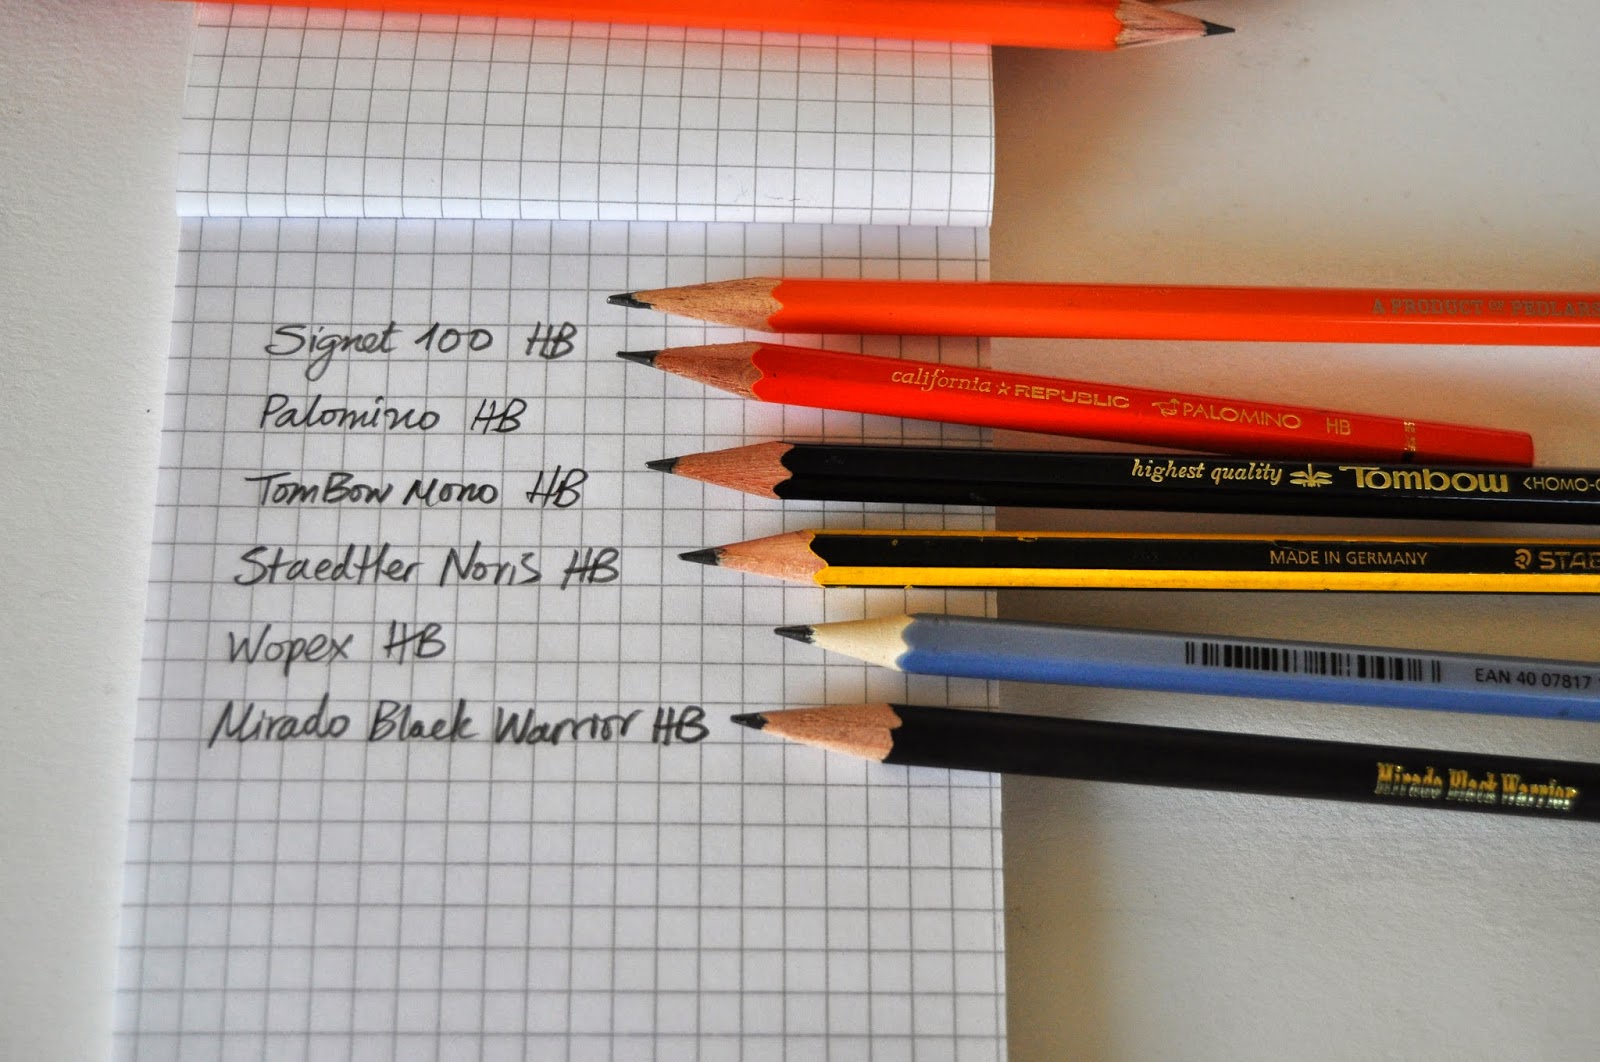 A PRODUCT OF PEDLARS
Signet 100 HB
california REPUBLIC PALOMINO HB
Palomino HB
highest quality Tombow <HOMO-
TomBow Mono HB
MADE IN GERMANY STAE
Staedtler Noris HB
Wopex HB
EAN 40 07817
Mirado Black Warrior HB
Mirado Black Warrior